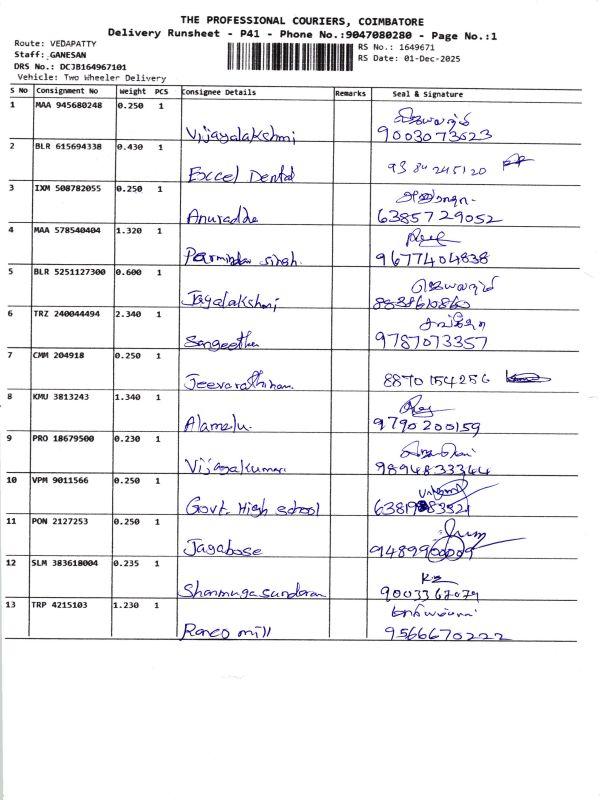 THE PROFESSIONAL COURIERS, COIMBATORE
Delivery Runsheet - P41 - Phone No.:9047080280 - Page No.:1
Route: VEDAPATTY
Staff: GANESAN
DRS No.: DCJB164967101
Vehicle: Two Wheeler Delivery
RS No.: 1649671
RS Date: 01-Dec-2025
S No Consignment No Weight PCS Consignee Details Remarks Seal & Signature
1 MAA 945680248 0.250 1
Vijayalakshmi 9003073623
2 BLR 615694338 0.430 1
Excel Dental 9384245120
3 IXM 508782055 0.250 1
Anuradha 6385729052
4 MAA 578540404 1.320 1
Parminder singh. 9677404838
5 BLR 5251127300 0.600 1
Jayalakshmi 8838610860
6 TRZ 240044494 2.340 1
Sangeetha 9787073357
7 CMM 204918 0.250 1
Jeevarathinam 8870154256
8 KMU 3813243 1.340 1
Alamelu. 9790200159
9 PRO 18679500 0.230 1
Vijayakumar 9894833344
10 VPM 9011566 0.250 1
Govt. High school
11 PON 2127253 0.250 1
Jagabose
12 SLM 383618004 0.235 1
Shanmuga sundaram 9003367079
13 TRP 4215103 1.230 1
Ranco mill 9566670222